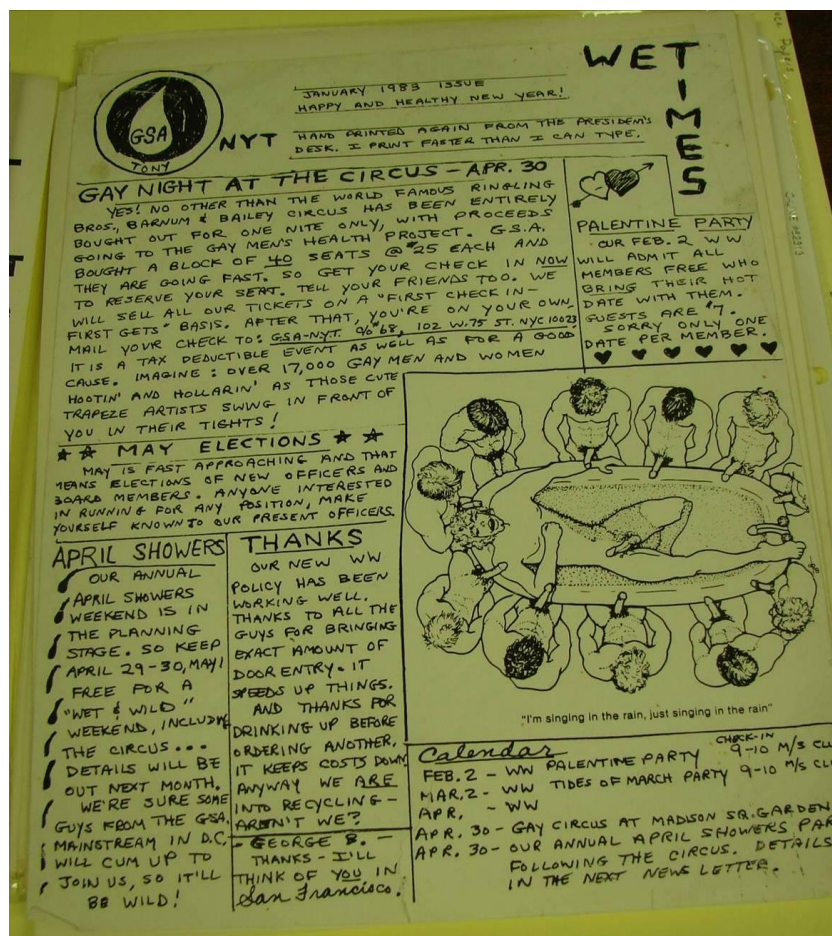 WET TIMES
GSA
TONY
NYT
JANUARY 1983 ISSUE
HAPPY AND HEALTHY NEW YEAR!
HAND PRINTED AGAIN FROM THE PRESIDEM'S
DESK. I PRINT FASTER THAN I CAN TYPE.
GAY NIGHT AT THE CIRCUS - APR. 30
YES! NO OTHER THAN THE WORLD FAMOUS RINGLING
BROS., BARNUM & BAILEY CIRCUS HAS BEEN ENTIRELY
BOUGHT OUT FOR ONE NITE ONLY, WITH PROCEEDS
GOING TO THE GAY MEN'S HEALTH PROJECT. G.S.A.
BOUGHT A BLOCK OF 40 SEATS @ $25 EACH AND
THEY ARE GOING FAST. SO GET YOUR CHECK IN NOW
TO RESERVE YOUR SEAT. TELL YOUR FRIENDS TOO. WE
WILL SELL ALL OUR TICKETS ON A "FIRST CHECK IN-
FIRST GETS" BASIS. AFTER THAT, YOU'RE ON YOUR OWN.
MAIL YOUR CHECK TO: GSA-NYT. c/o #68, 102 W. 75 ST. NYC 10023
IT IS A TAX DEDUCTIBLE EVENT AS WELL AS FOR A GOOD
CAUSE. IMAGINE: OVER 17,000 GAY MEN AND WOMEN
HOOTIN' AND HOLLARIN' AS THOSE CUTE
TRAPEZE ARTISTS SWWG IN FRONT OF
YOU IN THEIR TIGHTS!
PALENTINE PARTY
OUR FEB. 2 WW
WILL ADMIT ALL
MEMBERS FREE WHO
BRING THEIR HOT
DATE WITH THEM.
GUESTS ARE $7.
SORRY ONLY ONE
DATE PER MEMBER.
MAY ELECTIONS
MAY IS FAST APPROACHING AND THAT
MEANS ELECTIONS OF NEW OFFICERS AND
BOARD MEMBERS. ANYONE INTERESTED
IN RUNNING FOR ANY POSITION, MAKE
YOURSELF KNOWN TO OUR PRESENT OFFICERS.
APRIL SHOWERS
OUR ANNUAL
APRIL SHOWERS
WEEKEND IS IN
THE PLANNING
STAGE. SO KEEP
APRIL 29-30, MAY 1
FREE FOR A
"WET & WILD"
WEEKEND, INCLUDING
THE CIRCUS...
DETAILS WILL BE
OUT NEXT MONTH.
WE'RE SURE SOME
GUYS FROM THE GSA.
MAINSTREAM IN D.C.
WILL CUM UP TO
JOIN US, SO IT'LL
BE WILD!
THANKS
OUR NEW WW
POLICY HAS BEEN
WORKING WELL.
THANKS TO ALL THE
GUYS FOR BRINGING
EXACT AMOUNT OF
DOOR ENTRY. IT
SPEEDS UP THINGS.
AND THANKS FOR
DRINKING UP BEFORE
ORDERING ANOTHER.
IT KEEPS COSTS DOWN
ANYWAY WE ARE
INTO RECYCLING -
AREN'T WE?
- GEORGE B. -
THANKS - I'LL
THINK OF YOU IN
San Francisco.
"I'm singing in the rain, just singing in the rain"
Calendar
CHECK-IN
FEB. 2 - WW PALENTINE PARTY 9-10 M/S CLU
MAR. 2 - WW TIDES OF MARCH PARTY 9-10 M/S CL
APR. - WW
APR. 30 - GAY CIRCUS AT MADISON SQ. GARDEN
APR. 30 - OUR ANNUAL APRIL SHOWERS PAR
FOLLOWING THE CIRCUS. DETAILS
IN THE NEXT NEWS LETTER.